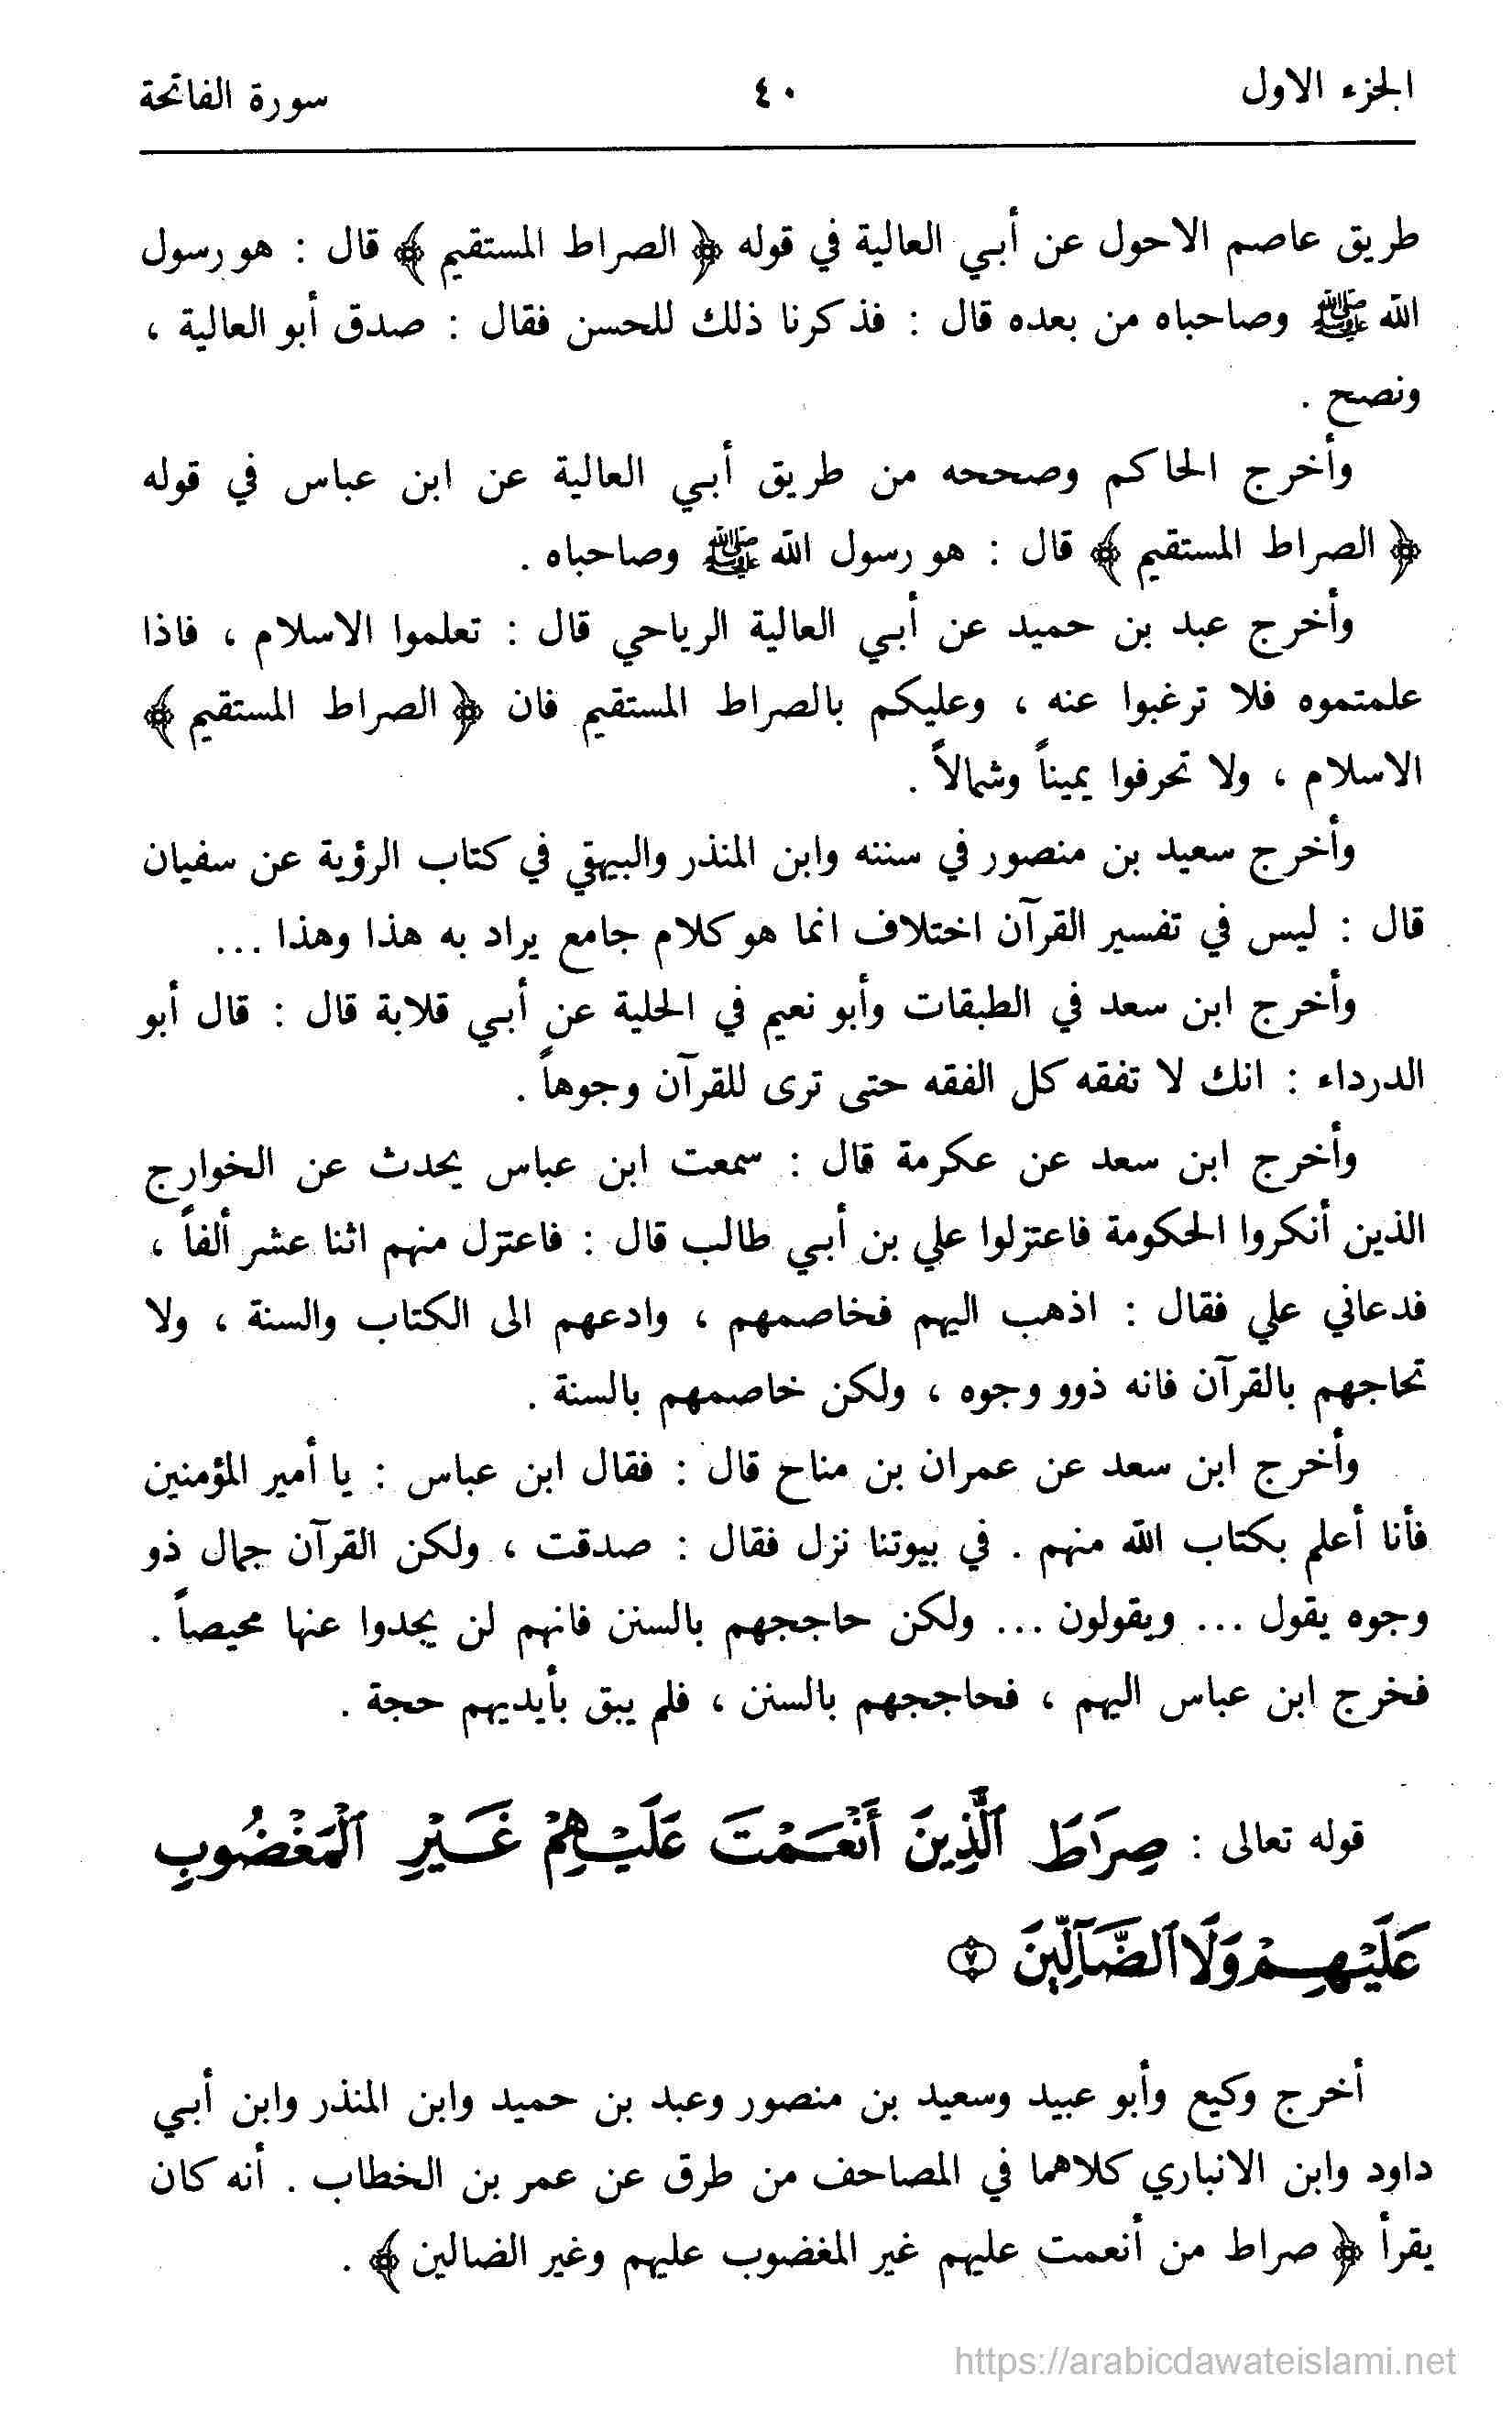 الجزء الاول ٤٠ سورة الفاتحة
طريق عاصم الاحول عن أبي العالية في قوله ﴿ الصراط المستقيم ﴾ قال : هو رسول
الله ﷺ وصاحباه من بعده قال : فذكرنا ذلك للحسن فقال : صدق أبو العالية ،
ونصح .
وأخرج الحاكم وصححه من طريق أبي العالية عن ابن عباس في قوله
﴿ الصراط المستقيم ﴾ قال : هو رسول الله ﷺ وصاحباه .
وأخرج عبد بن حميد عن أبي العالية الرياحي قال : تعلموا الاسلام ، فاذا
علمتموه فلا ترغبوا عنه ، وعليكم بالصراط المستقيم فان ﴿ الصراط المستقيم ﴾
الاسلام ، ولا تحرفوا يميناً وشمالاً .
وأخرج سعيد بن منصور في سننه وابن المنذر والبيهقي في كتاب الرؤية عن سفيان
قال : ليس في تفسير القرآن اختلاف انما هو كلام جامع يراد به هذا وهذا ...
وأخرج ابن سعد في الطبقات وأبو نعيم في الحلية عن أبي قلابة قال : قال أبو
الدرداء : انك لا تفقه كل الفقه حتى ترى للقرآن وجوهاً .
وأخرج ابن سعد عن عكرمة قال : سمعت ابن عباس يحدث عن الخوارج
الذين أنكروا الحكومة فاعتزلوا علي بن أبي طالب قال : فاعتزل منهم اثنا عشر ألفاً ،
فدعاني علي فقال : اذهب اليهم فخاصمهم ، وادعهم الى الكتاب والسنة ، ولا
تحاجهم بالقرآن فانه ذوو وجوه ، ولكن خاصمهم بالسنة .
وأخرج ابن سعد عن عمران بن مناح قال : فقال ابن عباس : يا أمير المؤمنين
فأنا أعلم بكتاب الله منهم . في بيوتنا نزل فقال : صدقت ، ولكن القرآن جمال ذو
وجوه يقول ... ويقولون ... ولكن حاججهم بالسنن فانهم لن يجدوا عنها محيصاً .
فخرج ابن عباس اليهم ، فحاججهم بالسنن ، فلم يبق بأيديهم حجة .
قوله تعالى : صِرَٰطَ ٱلَّذِينَ أَنْعَمْتَ عَلَيْهِمْ غَيْرِ ٱلْمَغْضُوبِ
عَلَيْهِمْ وَلَا ٱلضَّآلِّينَ ٧
أخرج وكيع وأبو عبيد وسعيد بن منصور وعبد بن حميد وابن المنذر وابن أبي
داود وابن الانباري كلاهما في المصاحف من طرق عن عمر بن الخطاب . أنه كان
يقرأ ﴿ صراط من أنعمت عليهم غير المغضوب عليهم وغير الضالين ﴾ .
https://arabicdawateislami.net